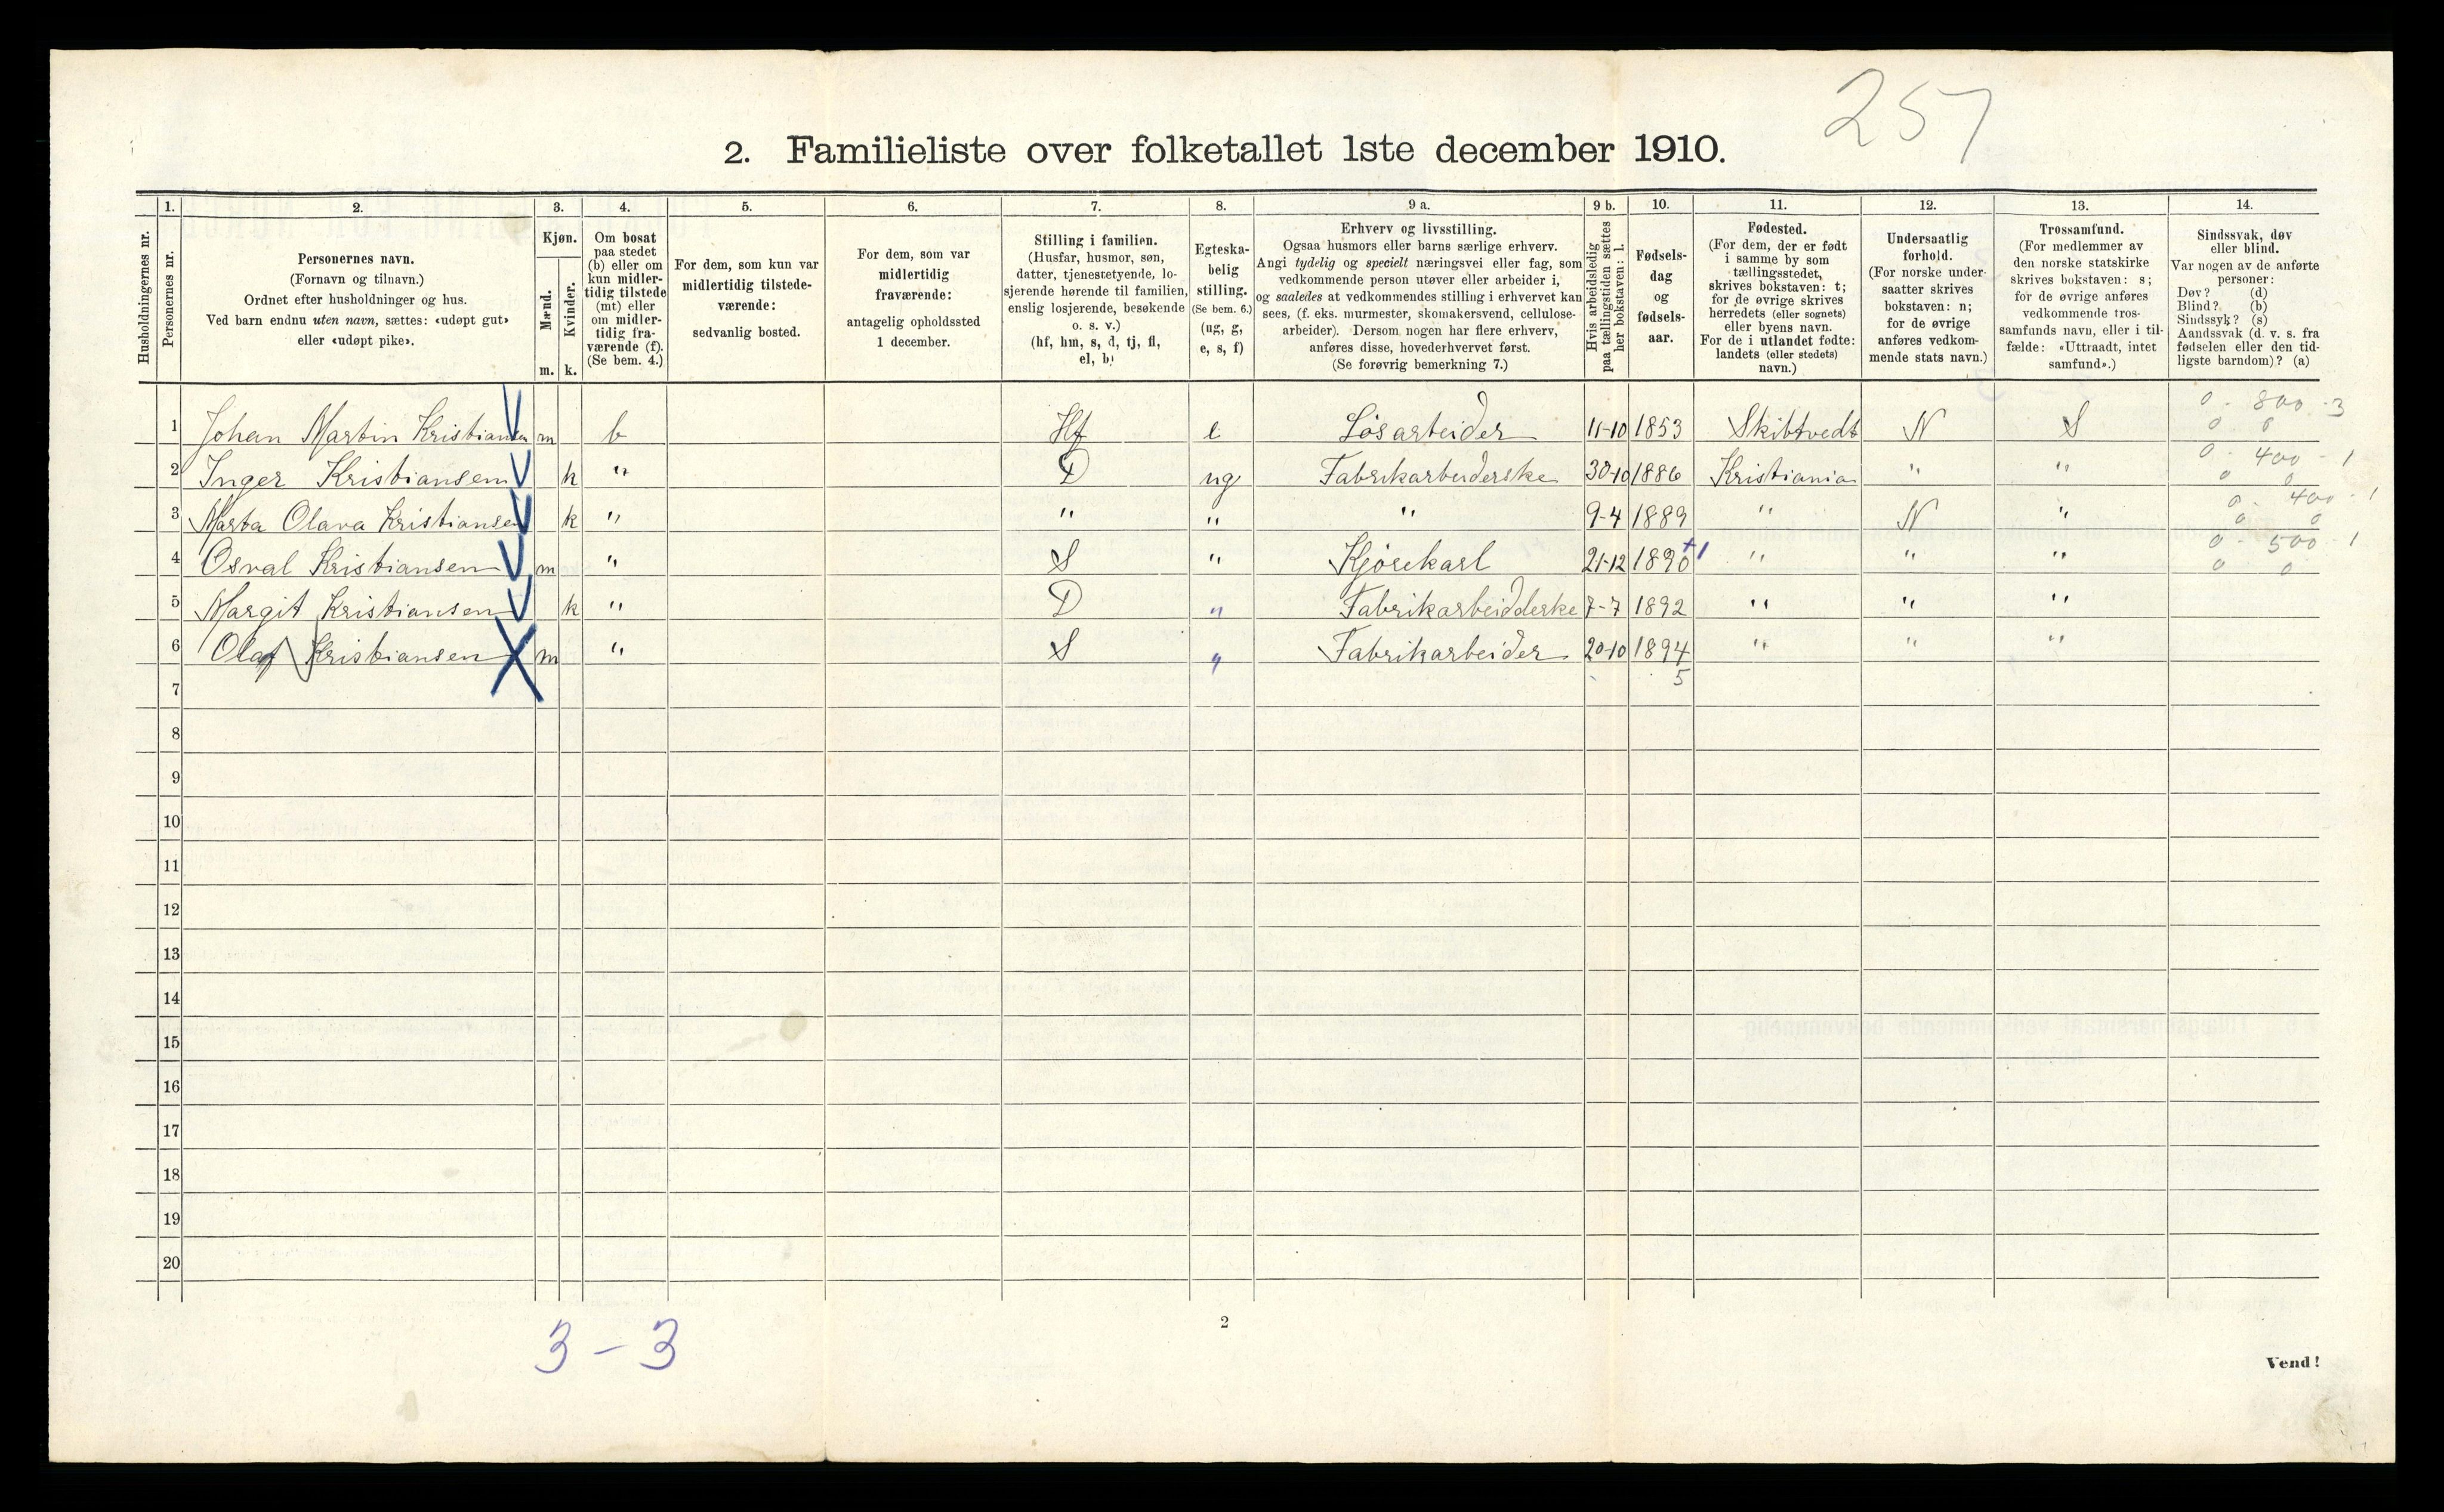 257
2. Familieliste over folketallet 1ste december 1910.
Husholdningernes nr.
1. Personernes nr.
2. Personernes navn.
(Fornavn og tilnavn.)
Ordnet efter husholdninger og hus.
Ved barn endnu uten navn, sættes: «udøpt gut»
eller «udøpt pike».
3. Kjøn.
Mænd. m.
Kvinder. k.
4. Om bosat
paa stedet
(b) eller om
kun midler-
tidig tilstede
(mt) eller
om midler-
tidig fra-
værende (f).
(Se bem. 4.)
5. For dem, som kun var
midlertidig tilstede-
værende:
sedvanlig bosted.
6. For dem, som var
midlertidig
fraværende:
antagelig opholdssted
1 december.
7. Stilling i familien.
(Husfar, husmor, søn,
datter, tjenestetyende, lo-
sjerende hørende til familien,
enslig losjerende, besøkende
o. s. v.)
(hf, hm, s, d, tj, fl,
el, b)
8. Egteska-
belig
stilling.
(Se bem. 6.)
(ug, g,
e, s, f)
9 a. Erhverv og livsstilling.
Ogsaa husmors eller barns særlige erhverv.
Angi tydelig og specielt næringsvei eller fag, som
vedkommende person utøver eller arbeider i,
og saaledes at vedkommendes stilling i erhvervet kan
sees, (f. eks. murmester, skomakersvend, cellulose-
arbeider). Dersom nogen har flere erhverv,
anføres disse, hovederhvervet først.
(Se forøvrig bemerkning 7.)
9 b. Hvis arbeidsledig
paa tællingstiden sættes
her bokstaven: l.
10. Fødsels-
dag
og
fødsels-
aar.
11. Fødested.
(For dem, der er født
i samme by som
tællingsstedet,
skrives bokstaven: t;
for de øvrige skrives
herredets (eller sognets)
eller byens navn.
For de i utlandet fødte:
landets (eller stedets)
navn.)
12. Undersaatlig
forhold.
(For norske under-
saatter skrives
bokstaven: n;
for de øvrige
anføres vedkom-
mende stats navn.)
13. Trossamfund.
(For medlemmer av
den norske statskirke
skrives bokstaven: s;
for de øvrige anføres
vedkommende tros-
samfunds navn, eller i til-
fælde: «Uttraadt, intet
samfund».)
14. Sindssvak, døv
eller blind.
Var nogen av de anførte
personer:
Døv? (d)
Blind? (b)
Sindssyk? (s)
Aandssvak (d. v. s. fra
fødselen eller den tid-
ligste barndom)? (a)
0 - 800 - 3
1 Johan Martin Kristiansen m b Hf e Løsarbeider 11-10 1853 Skibtvedt N S 0 0
0 - 400 - 1
2 Inger Kristiansen k " D ug Fabrikarbeiderske 30-10 1886 Kristiania " " 0 0
0 - 400 - 1
3 Marta Olava Kristiansen k " " " " 9-4 1889 " N " 0 0
0 - 500 - 1
4 Osval Kristiansen m " S " Kjørekarl 21-12 1890 +1 " " " 0 0
5 Margit Kristiansen k " D " Fabrikarbeidderske 7-7 1892 " " "
6 Olaf Kristiansen m " S " Fabrikarbeider 20-10 1894 " " "
7 5
8
9
10
11
12
13
14
15
16
17
18
19
20
3 - 3
2
Vend!